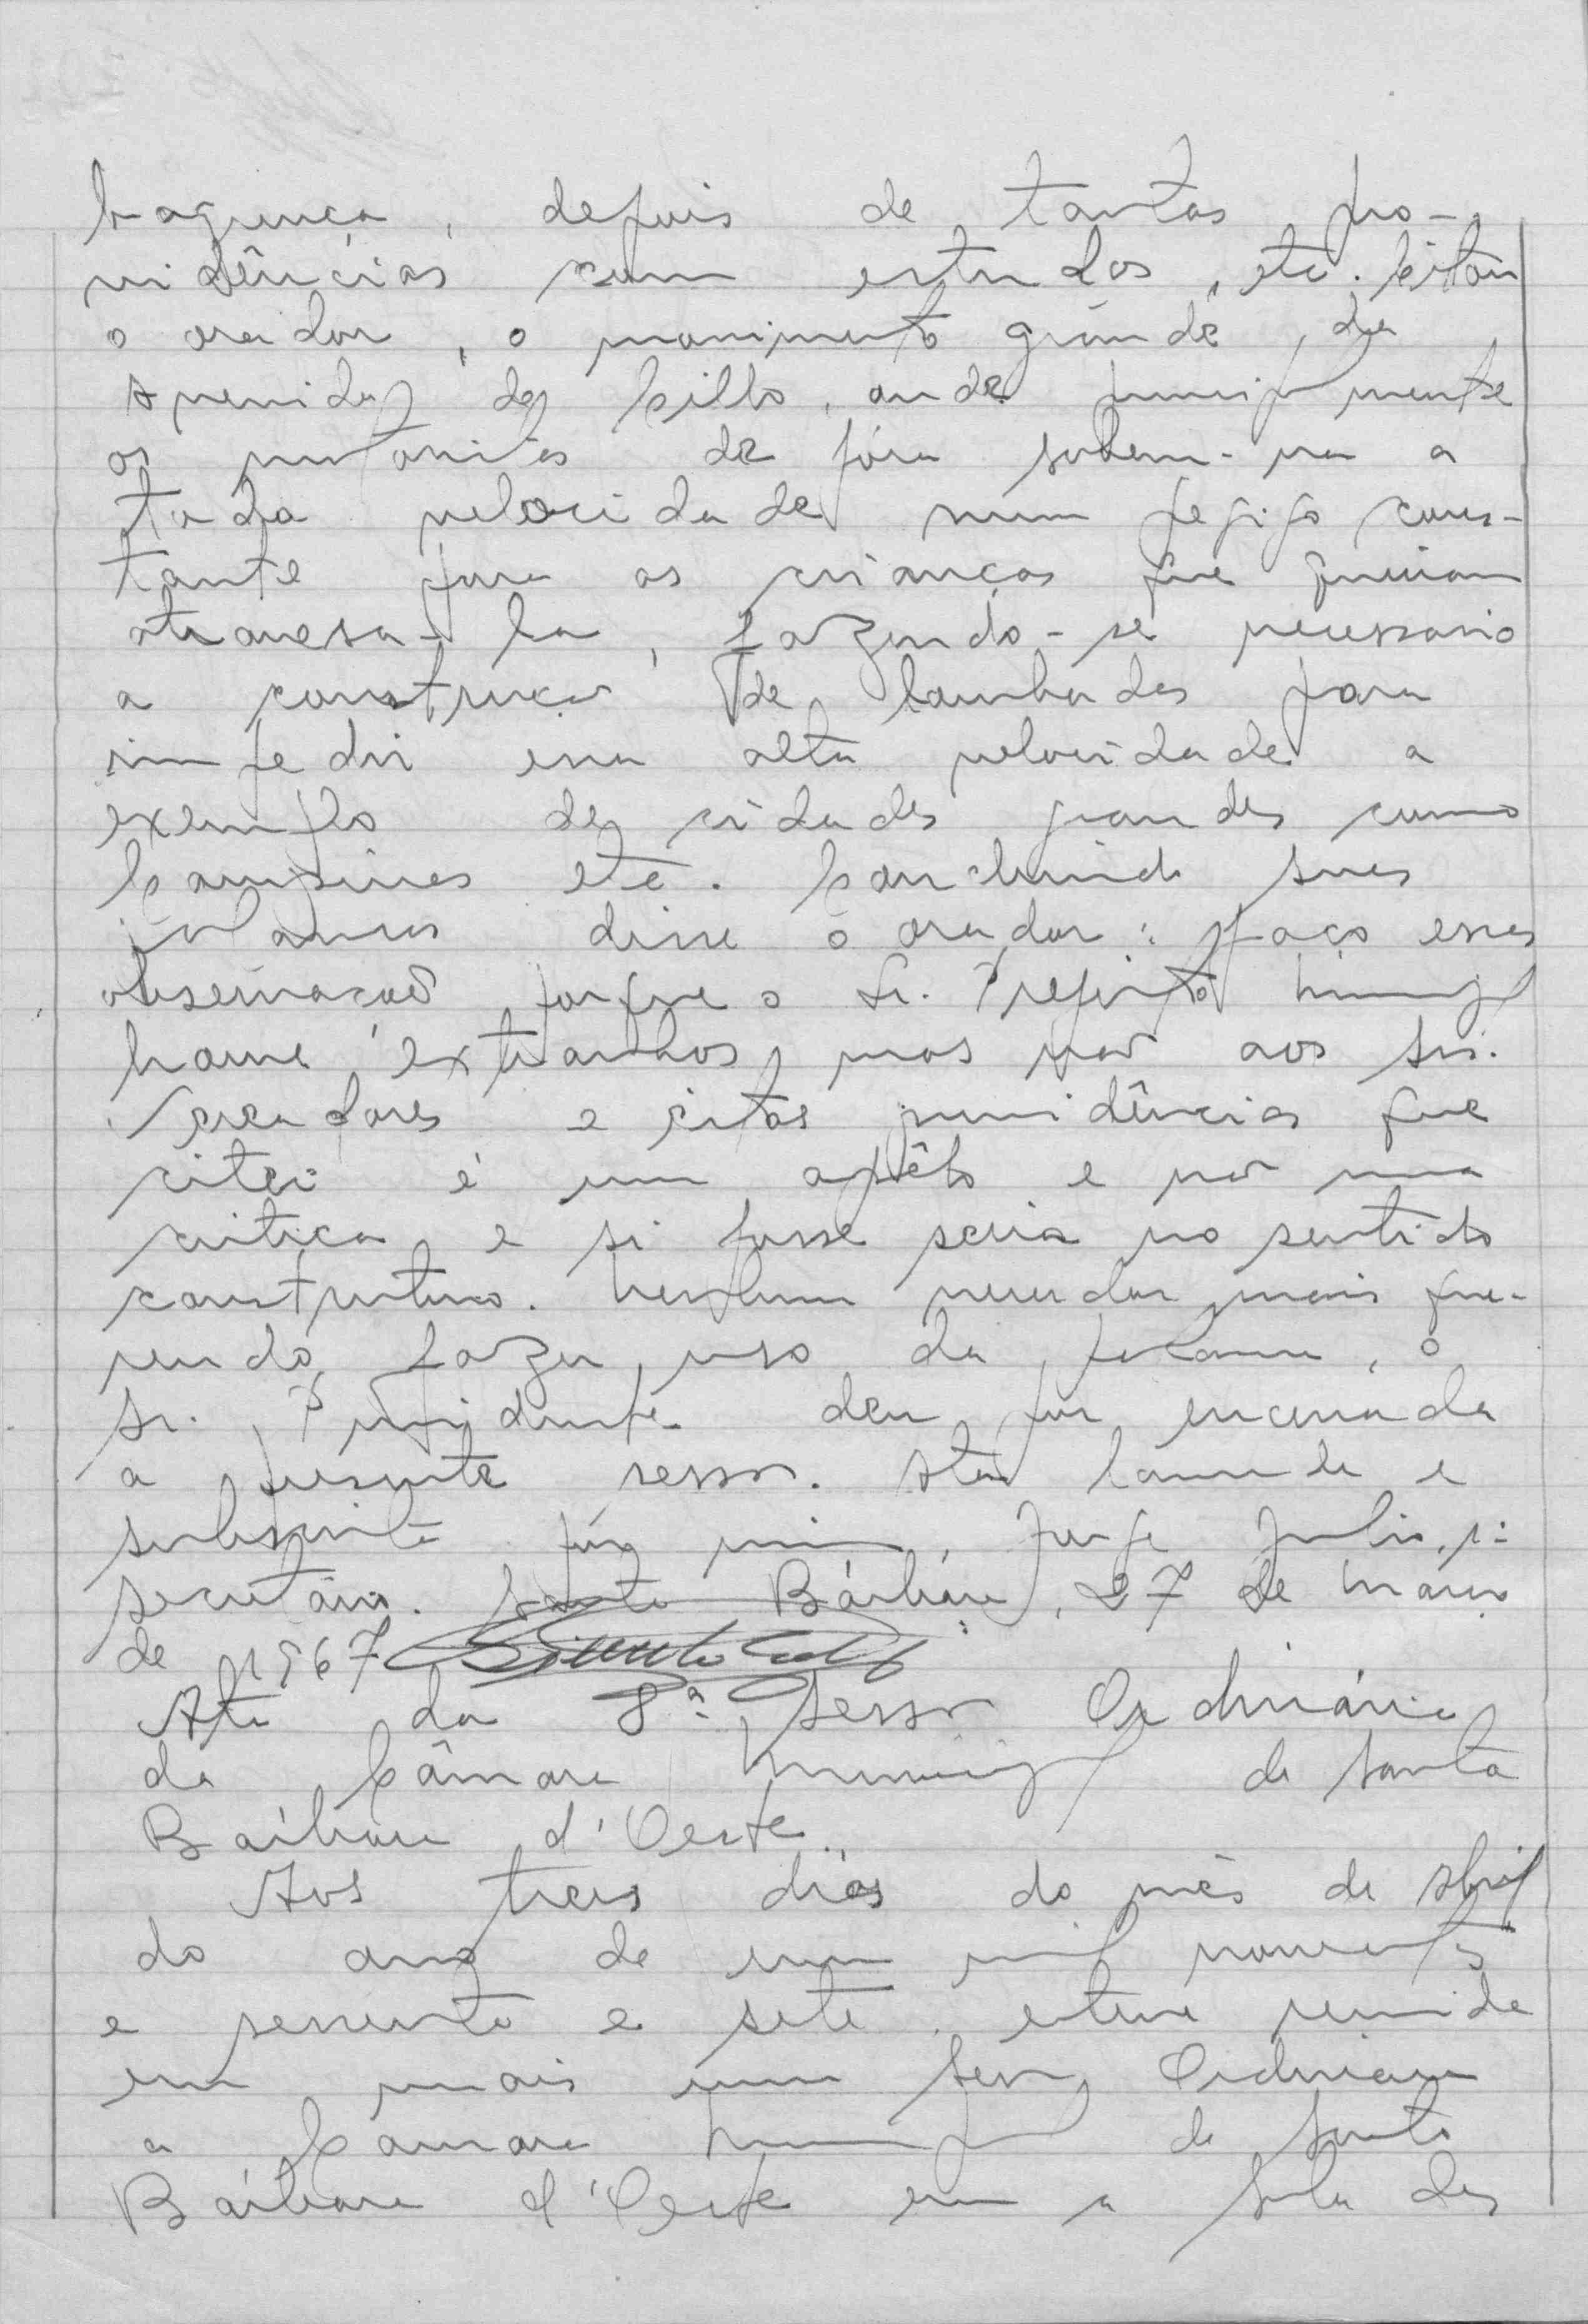 bagunça, depois de tantas pro-
vidências com estudos, etc. Citou
o orador, o movimento grande, da
Avenida de Cillo, onde principalmente
os motoristas de fóra sobem-na a
toda velocidade num perigo cons-
tante para as crianças que queiram
atravesa-la, fazendo-se necessario
a construção de lombadas para
impedir essa alta velocidade a
exemplo de cidades grandes como
Campinas etc. Concluindo suas
palavras disse o orador: faço essas
observação porque o Sr. Prefeito Municipal
houve extranhos, mas não aos srs.
Vereadores e estas providências que
citei é um apêlo e não uma
critica e si fosse seria no sentido
construtivo. Nenhum vereador mais que-
rendo fazer uso da palavra, o
Sr. Presidente deu por encerrada
a presente sessão. Ata lavrada e
subscrita por mim, Jorge Julio, 1º
secretário. Santa Bárbara, 27 de Março
de 1967
Ata da 8ª Sessão Ordinária
da Câmara Municipal de Santa
Bárbara d'Oeste.
Aos treis dias do mês de Abril
do ano de um mil novecentos
e sessenta e sete, esteve reunida
em mais uma Sessão Ordinaria
a Camara Municipal de Santa
Bárbara d'Oeste em a Sala das